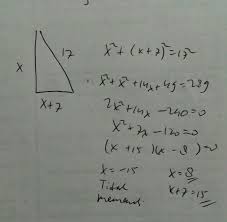 x
17
x+7
x² + (x+7)² = 17²
x² + x² + 14x + 49 = 289
2x² + 14x - 240 = 0
x² + 7x - 120 = 0
(x + 15)(x - 8) = 0
x = -15 x = 8
x+7 = 15